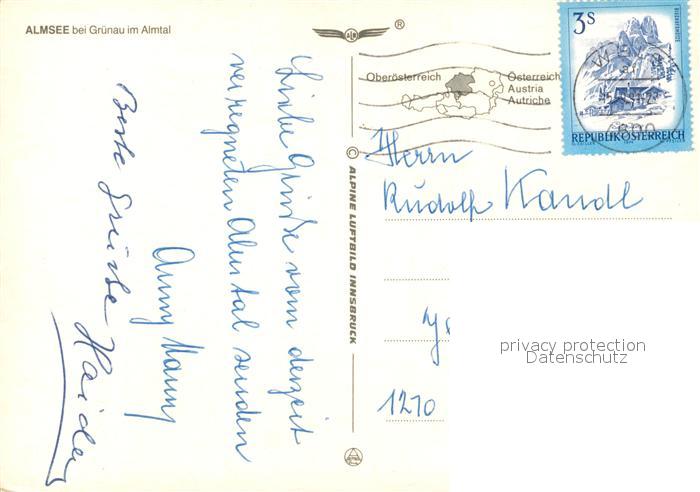 ALMSEE bei Grünau im Almtal
®
Oberösterreich
Österreich
Austria
Autriche
3s
BISCHOFSMÜTZE
REPUBLIK ÖSTERREICH
© ALPINE LUFTBILD INNSBRUCK
Liebe Grüße vom derzeit
verregneten Almtal senden
Anny Mann
Beste Grüße Haider
Herrn
Rudolf Kandl
1210
privacy protection
Datenschutz